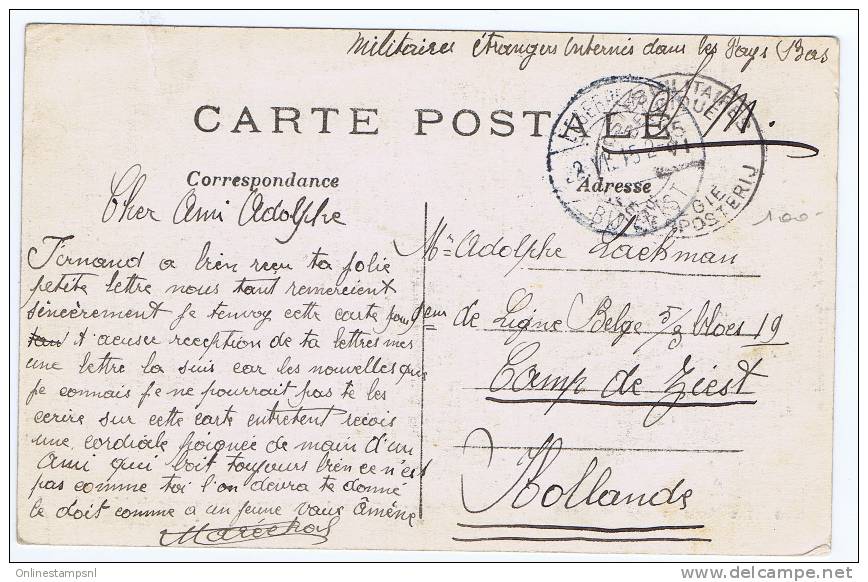 Militaires étrangers Internés dans les Pays Bas
S. M.
CARTE POSTALE
Correspondance
Adresse
MILITAIRES
POSTERIJ
BUREAU
100-
Cher Ami Adolphe
Fernand a bien reçu ta jolie
petite lettre nous tant remercient
sincèrement je tenvoy cette carte pour
t'acuser reception de ta lettres mes
une lettre la suis car les nouvelles que
je connais je ne pourrait pas te les
ecrire sur cette carte entretent reçois
une cordiale poignée de main d'un
Ami qui boit toujours bien ce n'est
pas comme toi l'on devra te donné
le doit comme a un jeune vaux
Maréchal
Mr Adolphe Lackman
9eme de Ligne Belge 5/3 bloes 19
Camp de Zéist
Hollande
Onlinestampsnl
www.delcampe.net